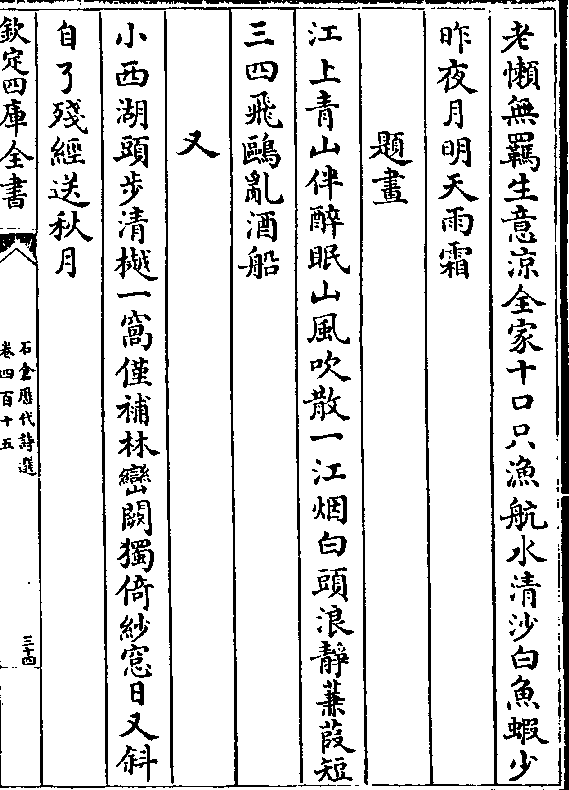 老懶無羈生意涼全家十口只漁航水清沙白魚蝦少
昨夜月明天雨霜
題畫
江上青山伴醉眠山風吹散一江烟白頭浪靜蒹葭短
三四飛鷗亂酒船
又
小西湖頭步清樾一窩僅補林巒闕獨倚紗窓日又斜
自了殘經送秋月
欽定四庫全書
石倉歷代詩選
卷四百十五
三十四